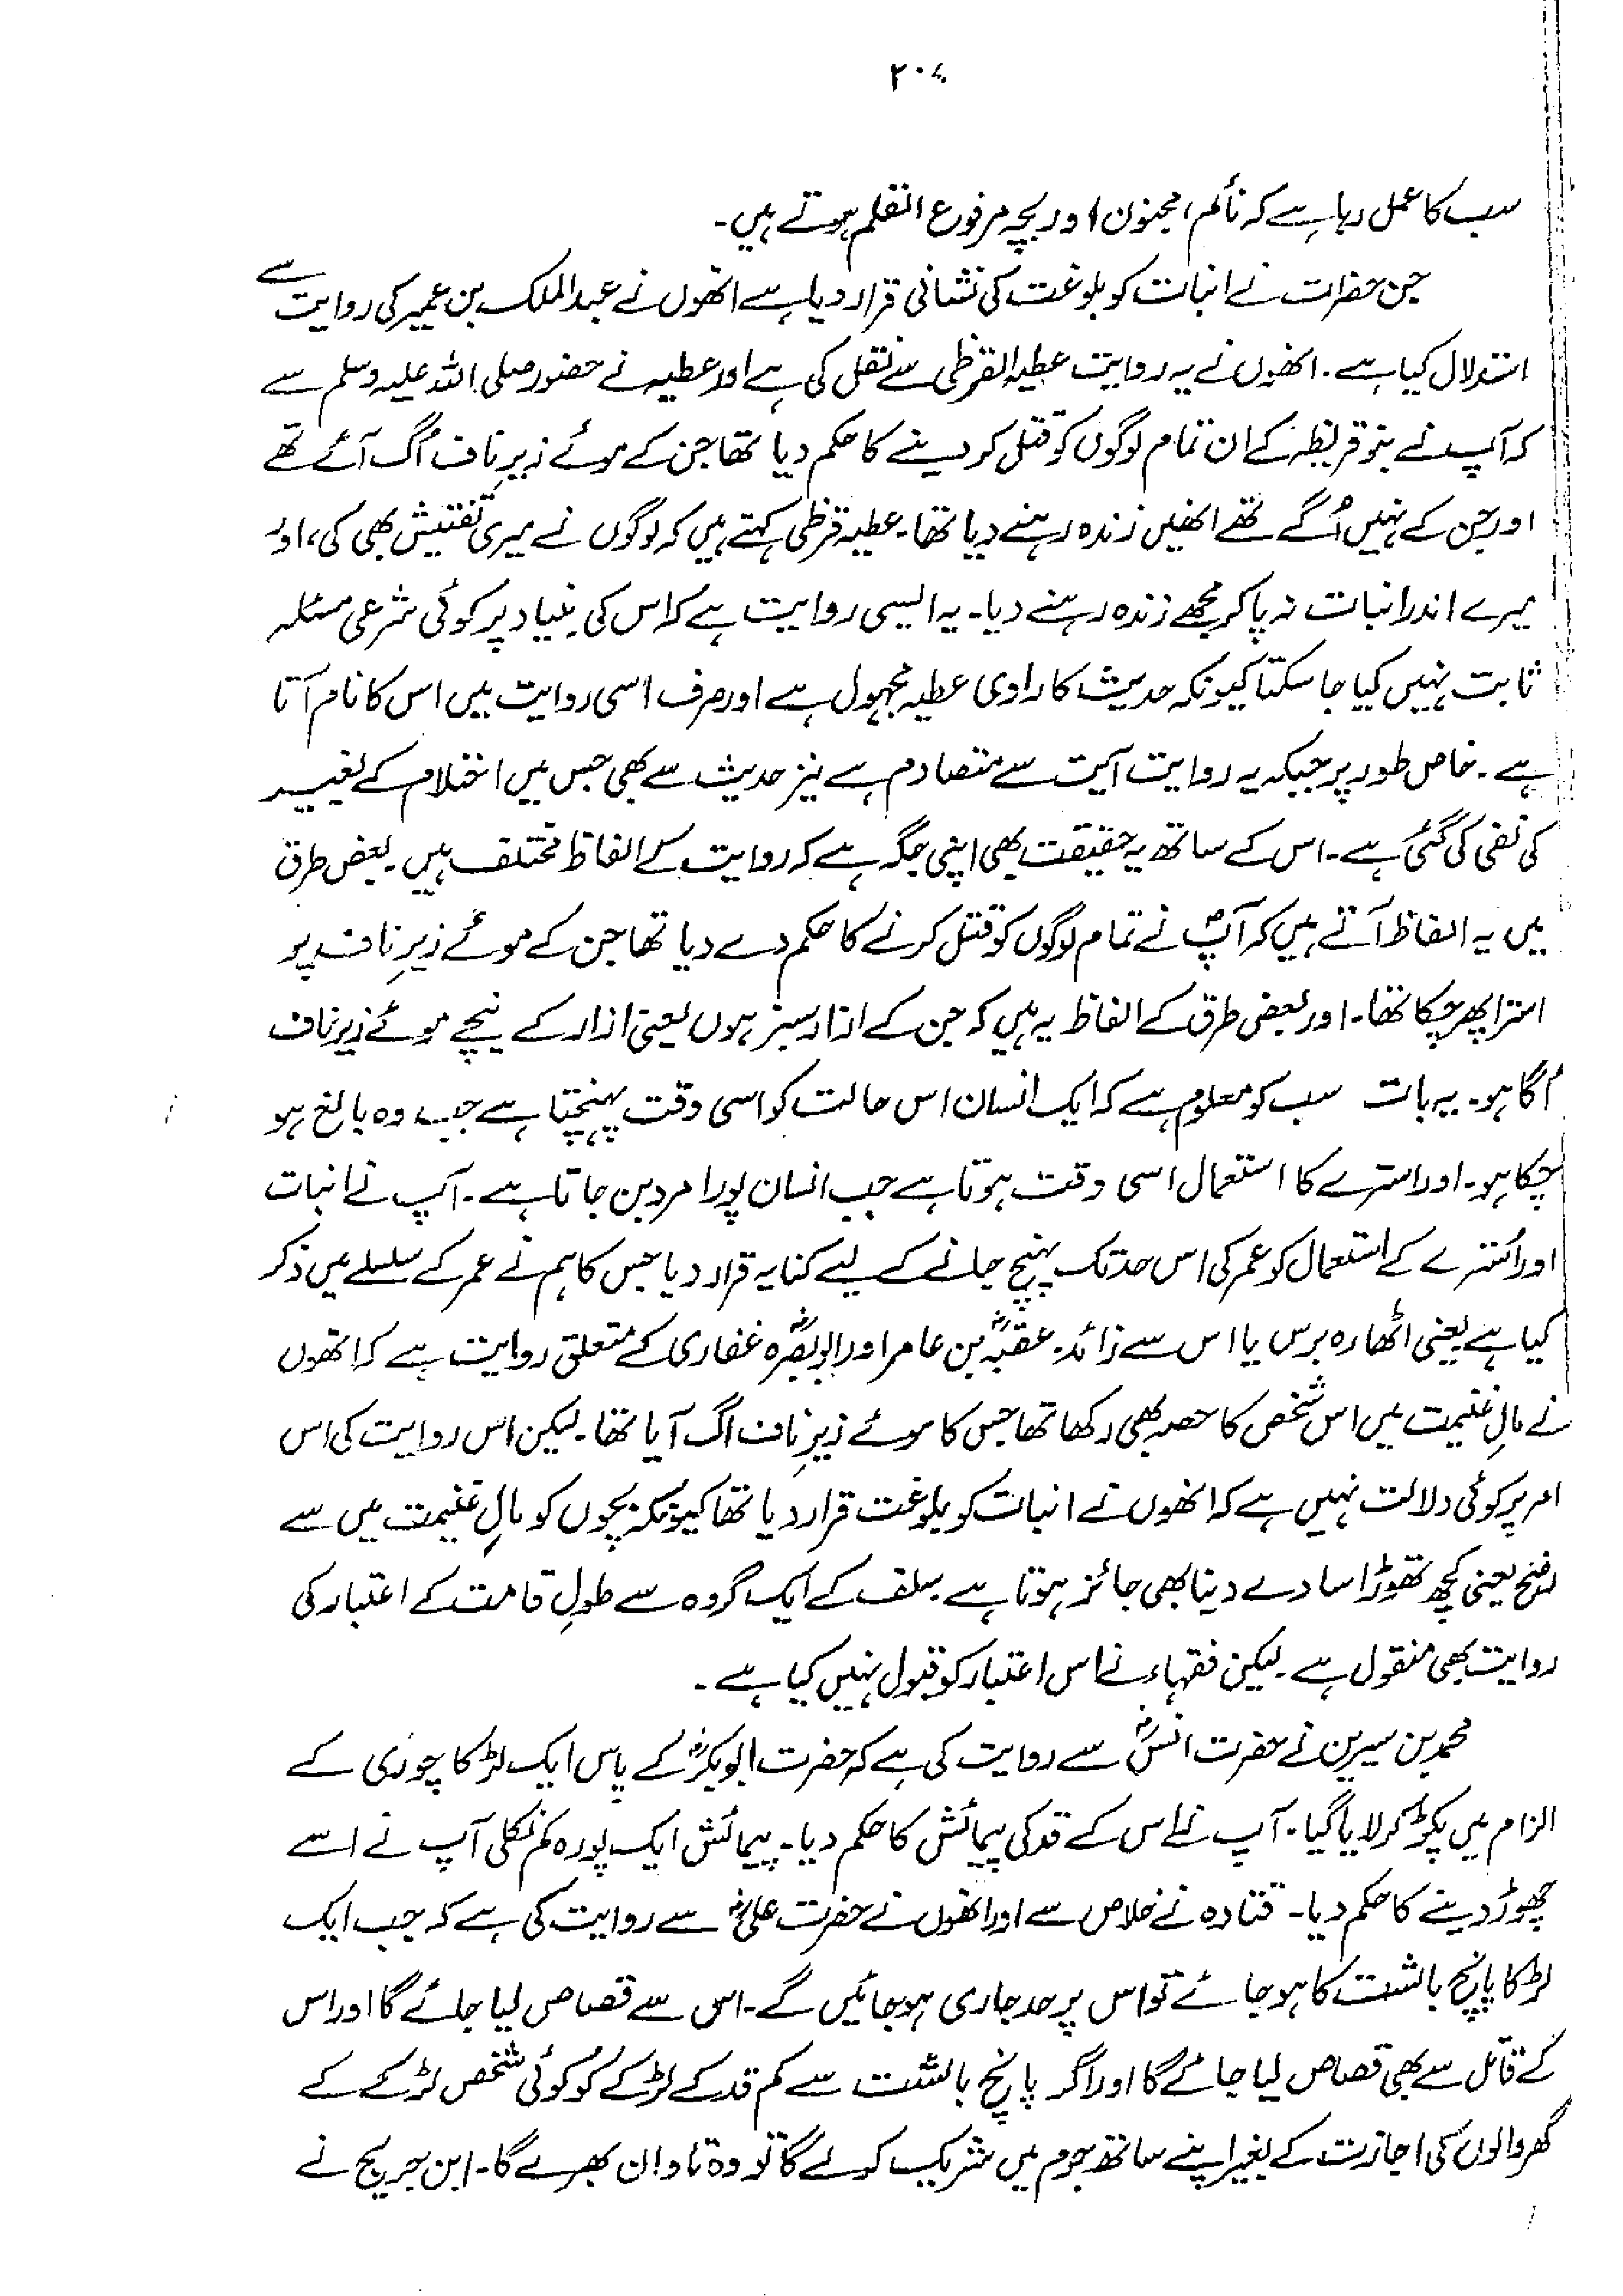 ۲۰۴
سب کا عمل رہا ہے کہ نائم، مجنون اور بچہ مرفوع القلم ہوتے ہیں۔
جن حضرات نے انبات کو بلوغت کی نشانی قرار دیا ہے انھوں نے عبدالملک بن عمیر کی روایت سے
استدلال کیا ہے۔ انھوں نے یہ روایت عطیہ القرظی سے نقل کی ہے اور عطیہ نے حضور صلی اللہ علیہ وسلم سے
کہ آپ نے بنو قریظہ کے ان تمام لوگوں کو قتل کر دینے کا حکم دیا تھا جن کے موئے زیرِ ناف اُگ آئے تھے
اور جن کے نہیں اُگے تھے انھیں زندہ رہنے دیا تھا۔ عطیہ قرظی کہتے ہیں کہ لوگوں نے میری تفتیش بھی کی، اور
میرے اندر انبات نہ پا کر مجھے زندہ رہنے دیا۔ یہ ایسی روایت ہے کہ اس کی بنیاد پر کوئی شرعی مسئلہ
ثابت نہیں کیا جا سکتا کیونکہ حدیث کا راوی عطیہ مجہول ہے اور صرف اسی روایت میں اس کا نام آتا
ہے۔ خاص طور پر جبکہ یہ روایت آیت سے متصادم ہے نیز حدیث سے بھی جس میں احتلام کے بغیر
کی نفی کی گئی ہے۔ اس کے ساتھ یہ حقیقت بھی اپنی جگہ ہے کہ روایت کے الفاظ مختلف ہیں۔ بعض طرق
میں یہ الفاظ آتے ہیں کہ آپؐ نے تمام لوگوں کو قتل کرنے کا حکم دے دیا تھا جن کے موئے زیرِ ناف پر
استرا پھر چکا تھا۔ اور بعض طرق کے الفاظ یہ ہیں کہ جن کے ازار سبز ہوں یعنی ازار کے نیچے موئے زیرِ ناف
اُگا ہو۔ یہ بات سب کو معلوم ہے کہ ایک انسان اس حالت کو اسی وقت پہنچتا ہے جب وہ بالغ ہو
چکا ہو۔ اور استرے کا استعمال اسی وقت ہوتا ہے جب انسان پورا مرد بن جاتا ہے۔ آپ نے انبات
اور اُسترے کے استعمال کو عمر کی اس حد تک پہنچ جانے کے لیے کنایہ قرار دیا جس کا ہم نے عمر کے سلسلے میں ذکر
کیا ہے یعنی اٹھارہ برس یا اس سے زائد۔ عقبہؓ بن عامر اور ابو بصرہؓ غفاری کے متعلق روایت ہے کہ انھوں
نے مالِ غنیمت میں اس شخص کا حصہ بھی رکھا تھا جس کا موئے زیرِ ناف اُگ آیا تھا۔ لیکن اس روایت کی اس
امر پر کوئی دلالت نہیں ہے کہ انھوں نے انبات کو بلوغت قرار دیا تھا کیونکہ بچوں کو مالِ غنیمت میں سے
رضخ یعنی کچھ تھوڑا سا دے دینا بھی جائز ہوتا ہے۔ سلف کے ایک گروہ سے طولِ قامت کے اعتبار کی
روایت بھی منقول ہے۔ لیکن فقہاء نے اس اعتبار کو قبول نہیں کیا ہے۔
محمد بن سیرین نے حضرت انسؓ سے روایت کی ہے کہ حضرت ابوبکرؓ کے پاس ایک لڑکا چوری کے
الزام میں پکڑ کر لایا گیا۔ آپ نے اس کے قد کی پیمائش کا حکم دیا۔ پیمائش ایک پورہ کم نکلی آپ نے اسے
چھوڑ دینے کا حکم دیا۔ قتادہ نے خلاص سے اور انھوں نے حضرت علیؓ سے روایت کی ہے کہ جب ایک
لڑکا پانچ بالشت کا ہو جائے تو اس پر حد جاری ہو جائیں گے۔ اس سے قصاص لیا جائے گا اور اس
کے قاتل سے بھی قصاص لیا جائے گا اور اگر پانچ بالشت سے کم قد کے لڑکے کو کوئی شخص لڑکے کے
گھر والوں کی اجازت کے بغیر اپنے ساتھ جرم میں شریک کرے گا تو وہ تاوان بھرے گا۔ ابن جریج نے